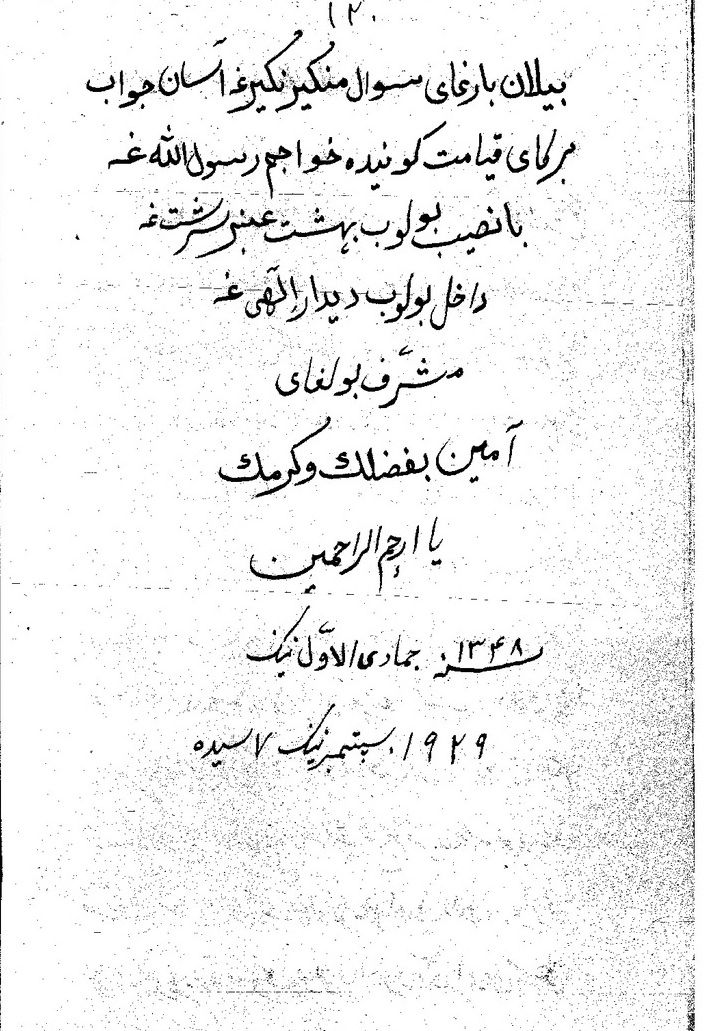 ۱۲۰
بیلان بارغای سوال منکیر نکیرغه آسان جواب
برکای قیامت کونیده خواجم رسول الله غه
با نصیب بولوب بهشت عنبر سرشت غه
داخل بولوب دیدار إلٓهی غه
مشرَّف بولغای
آمین بفضلك وکرمك
یا ارحم الراحمین
سنه ۱۳۴۸ جمادی الاوّل نیک
۱۹۲۹ سپتمبر نیک ۷ سیده